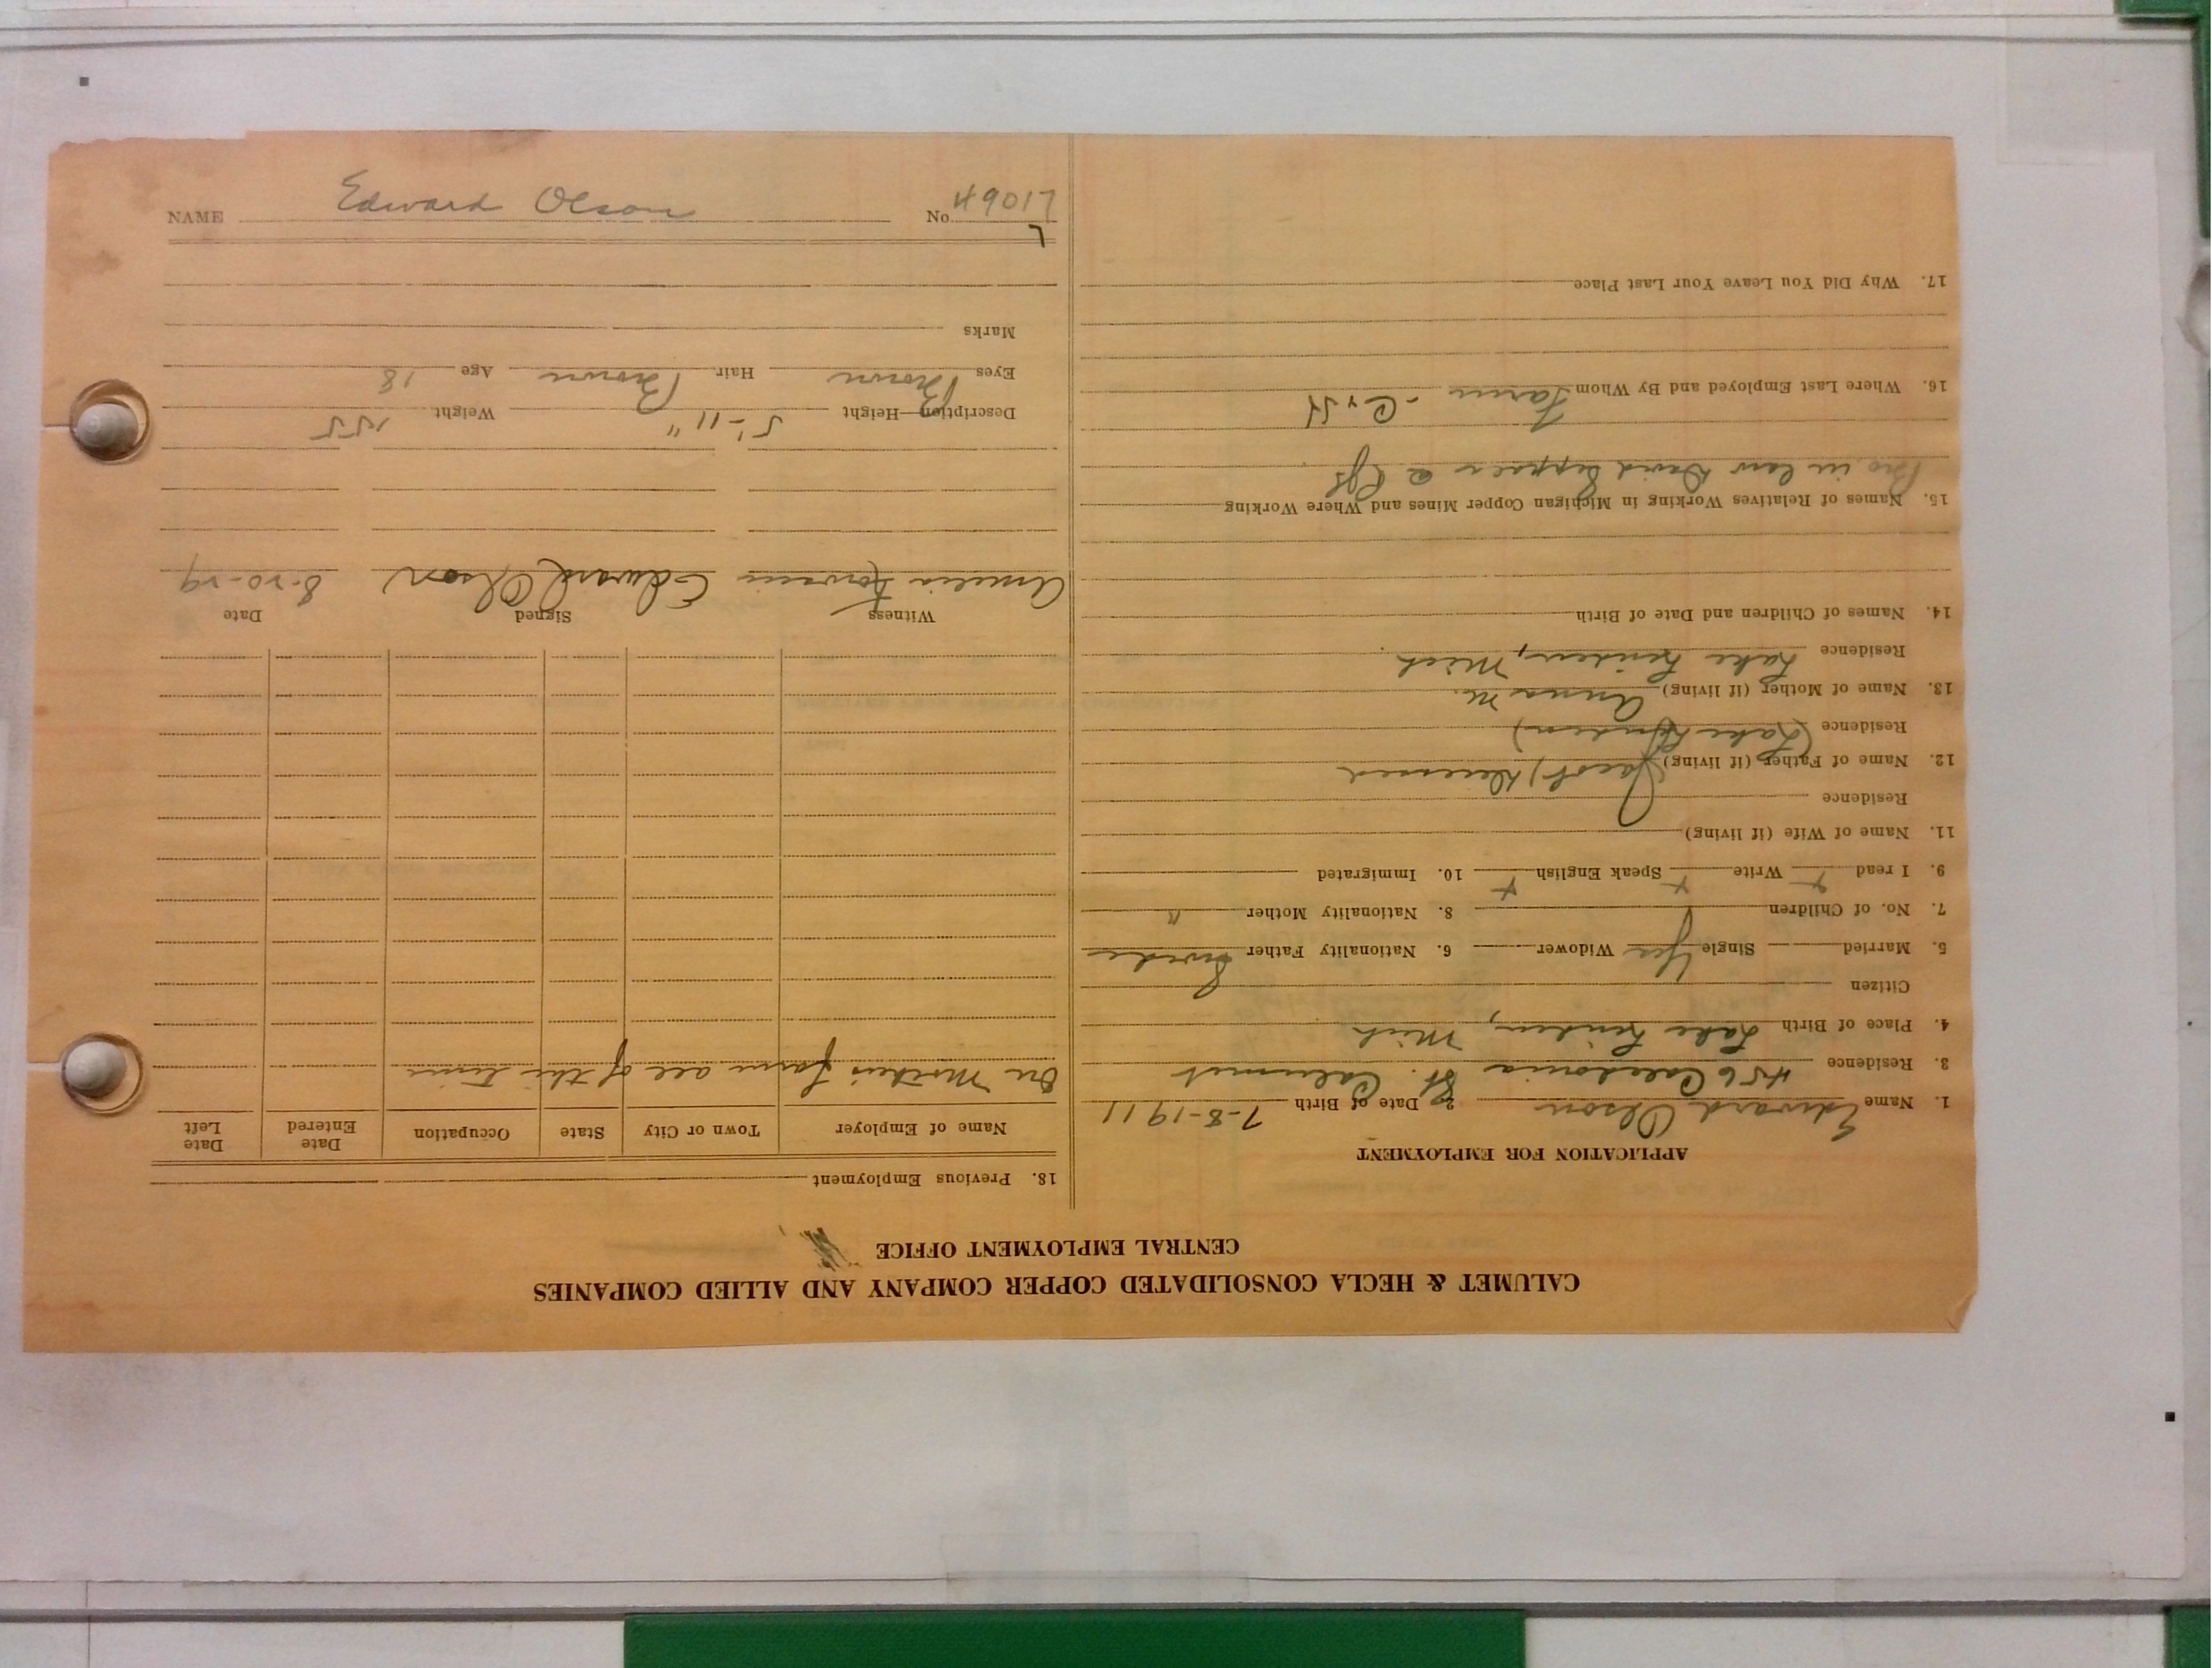 NAME Edward Olson No. 49017
CALUMET & HECLA CONSOLIDATED COPPER COMPANY AND ALLIED COMPANIES
CENTRAL EMPLOYMENT OFFICE
APPLICATION FOR EMPLOYMENT
1. Name Edward Olson 2. Date of Birth 7-8-1911
3. Residence 456 Caledonia St. Calumet
4. Place of Birth Lake Linden, Mich
Citizen
5. Married Single Yes Widower 6. Nationality Father Swede
7. No. of Children 8. Nationality Mother "
9. I read x Write x Speak English x 10. Immigrated
11. Name of Wife (if living)
Residence
12. Name of Father (if living) (Jacob) Deceased
Residence (Lake Linden)
13. Name of Mother (if living) Anna M.
Residence Lake Linden, Mich
14. Names of Children and Date of Birth
15. Names of Relatives Working in Michigan Copper Mines and Where Working
Bro in law David
16. Where Last Employed and By Whom Farm - C & H
17. Why Did You Leave Your Last Place
18. Previous Employment
Name of Employer Town or City State Occupation Date Entered Date Left
On Mother's farm all of the time
Witness Signed Date
Amelia Edward Olson 8-20-29
Description—Height 5'-11" Weight 155
Eyes Brown Hair Brown Age 18
Marks